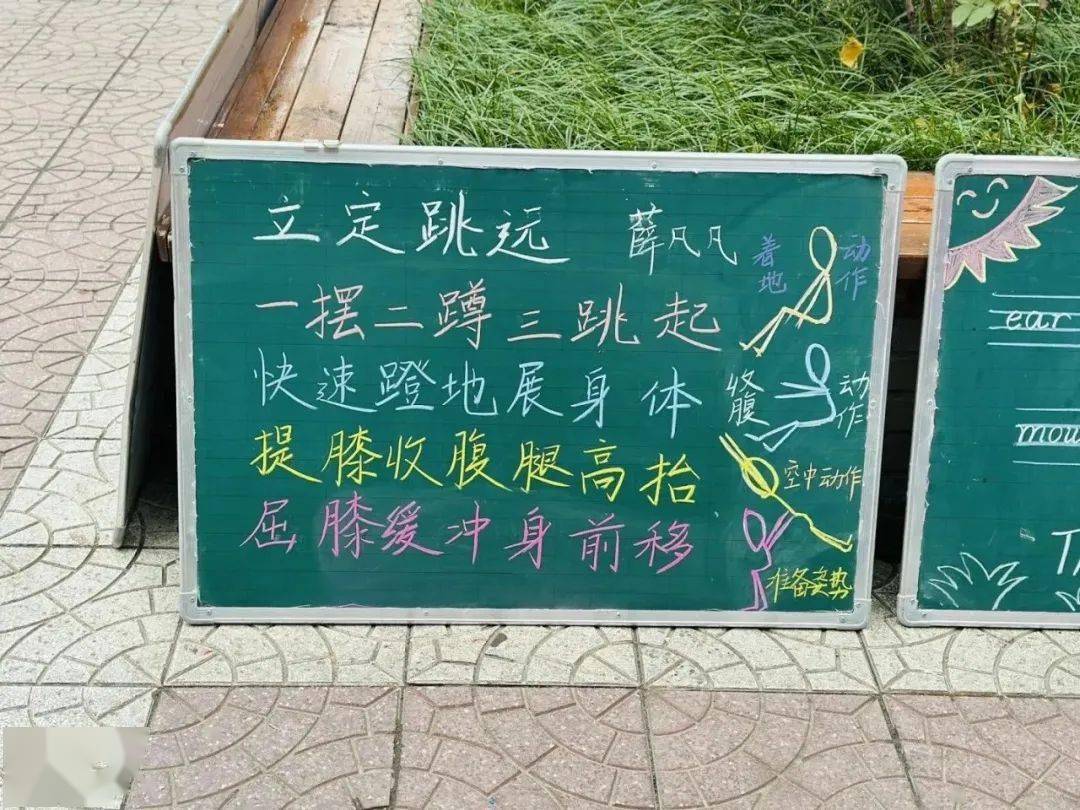 立定跳远 薛凡凡
一摆二蹲三跳起
快速蹬地展身体
提膝收腹腿高抬
屈膝缓冲身前移
着地 动作
收腹 动作
空中动作
准备姿势
ear
mou
T